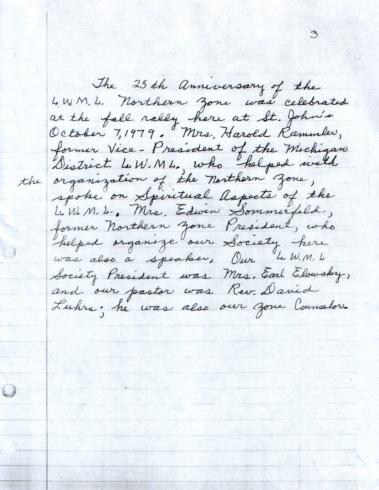 3
The 25th Anniversary of the
L.W.M.L. Northern Zone was celebrated
at the fall rally here at St. John's
October 7, 1979. Mrs. Harold Rammler,
former Vice-President of the Michigan
District L.W.M.L. who helped with
the organization of the Northern Zone,
spoke on Spiritual Aspects of the
L.W.M.L. Mrs. Edwin Sommerfeld,
former Northern Zone President, who
helped organize our Society here
was also a speaker. Our L.W.M.L
Society President was Mrs. Earl Elowsky,
and our pastor was Rev. David
Luhrs; he was also our Zone Counselor.